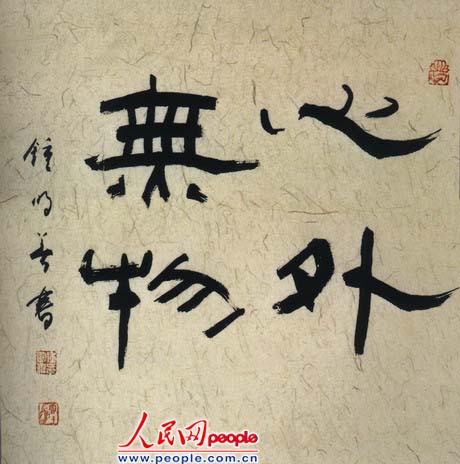 心外
無物
鐘明善書
人民网people
www.people.com.cn